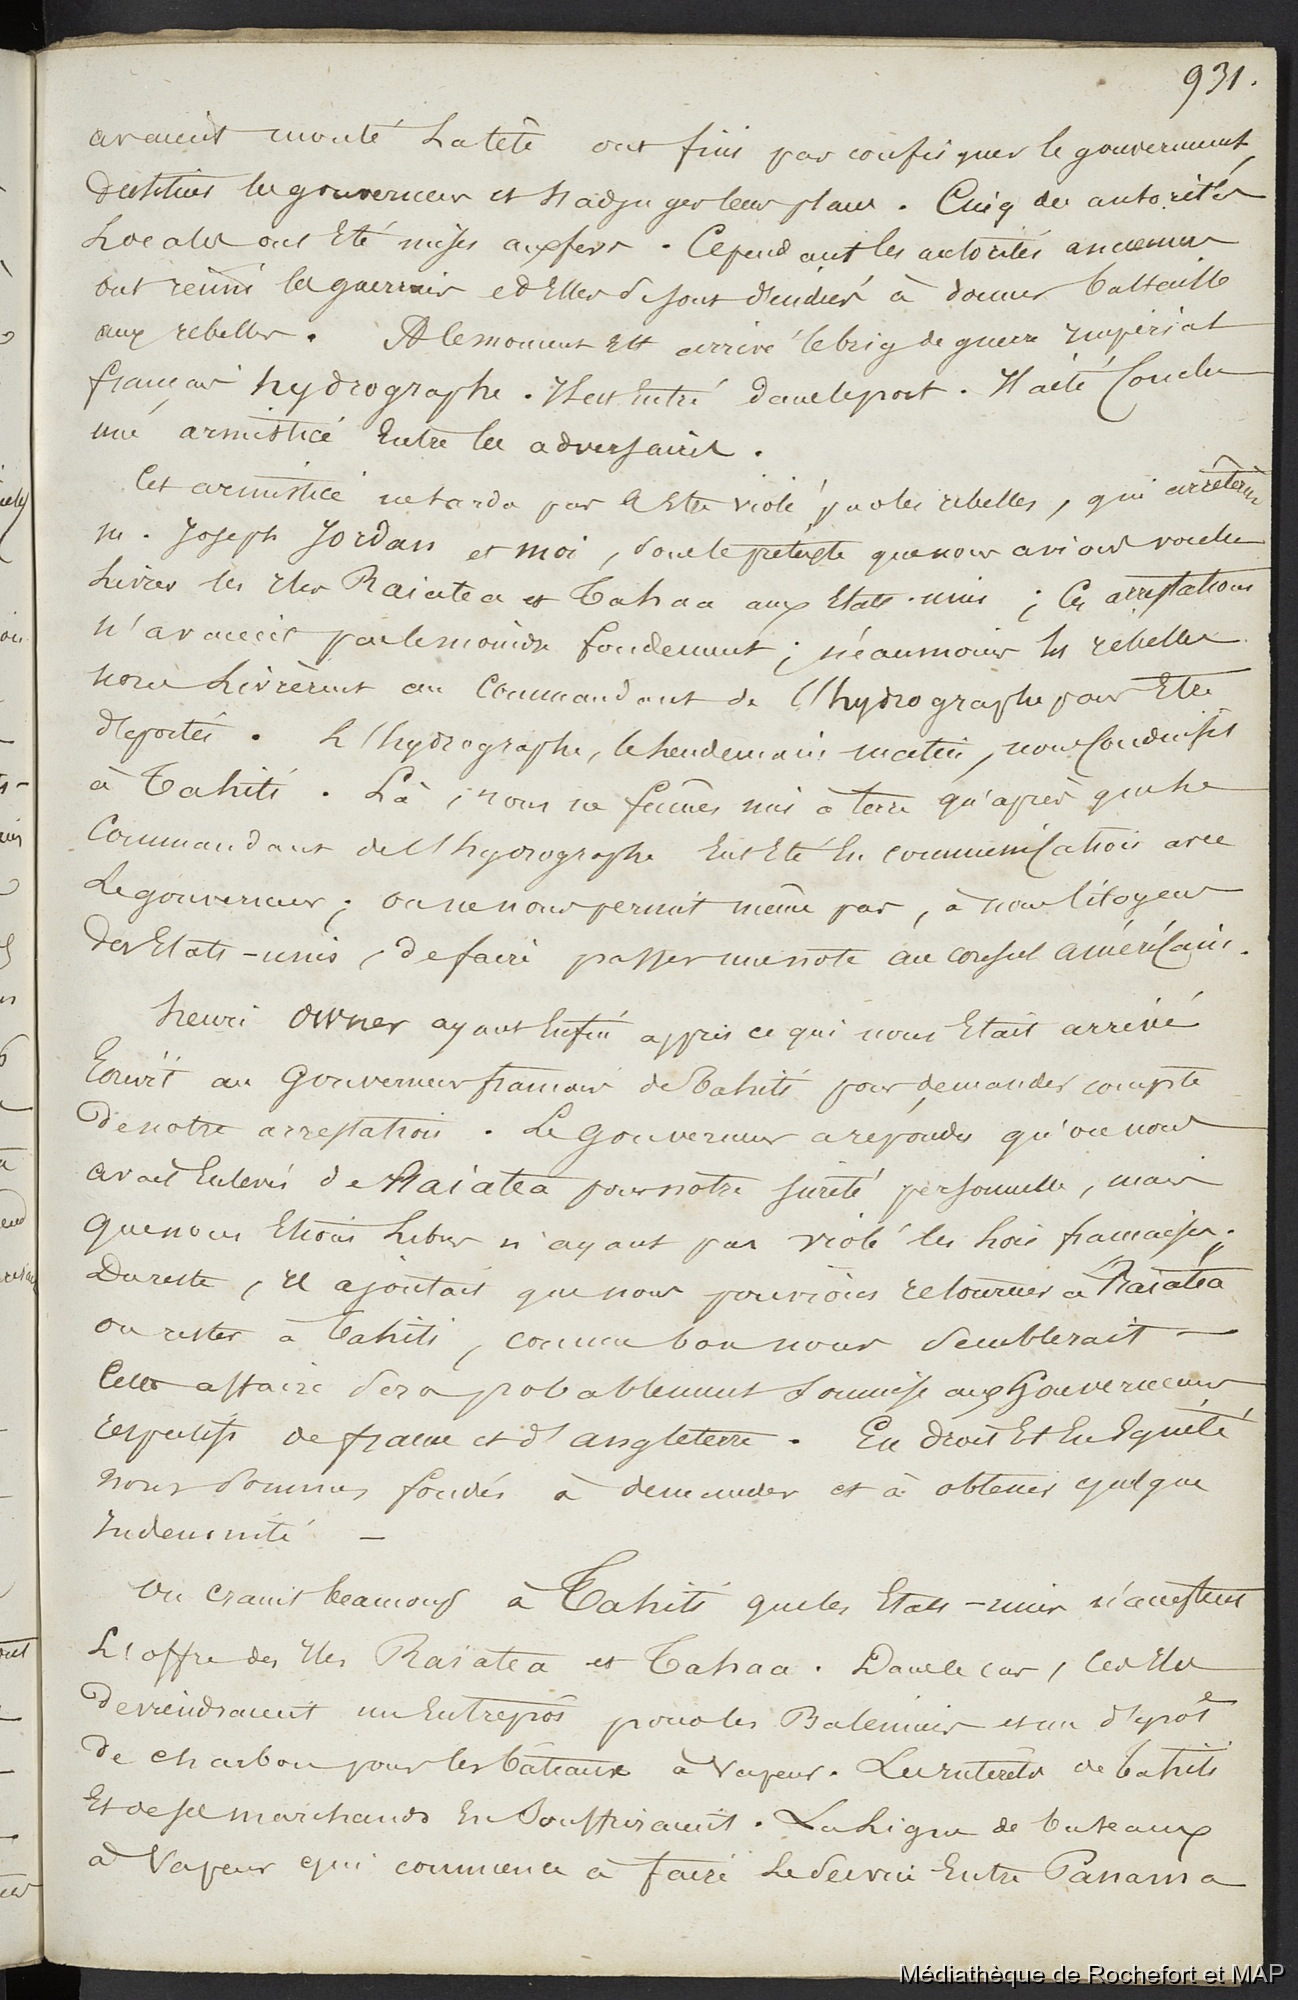 931.
avaient monté la tête ont fini par confisquer le gouvernement,
destituer les gouverneurs et s'adjuger leur place. Cinq des autorités
Locales ont Eté mises aux fers. Cependant les autorités anciennes
ont réuni les guerriers et Elles se sont décidées à donner battaille
aux rebelles. A ce moment Est arrivé le brig de guerre impérial
français hydrographe. Il est Entré dans le port. Il a été Conclu
une armistice Entre les adversaires.
Cet armistice ne tarda pas à Etre violé par les rebelles, qui arrêtèrent
m. Joseph Jordan et moi, sous le prétexte que nous avions voulu
Livrer les iles Raiatea et Tahaa aux Etats-unis ; Ces arrestations
n'avaient pas le moindre fondement ; néanmoins les rebelles
nous Livrèrent au Commandant de l'hydrographe pour Etre
déportés. L'hydrographe, le Lendemain matin, nous Conduisit
à Tahiti. Là, nous ne fûmes mis à terre qu'après que Le
Commandant de l'hydrographe Eut Eté En communication avec
Le gouverneur ; on ne nous permit même pas, à nous Citoyens
des Etats-unis, de faire passer une note au consul américain.
henri owner ayant Enfin appris ce qui nous Etait arrivé
Ecrivit au Gouverneur français de Tahiti pour demander compte
De notre arrestation. Le Gouverneur a répondu qu'on nous
avait Enlevés de Raiatea pour notre sûreté personnelle, mais
que nous Etions Libres n'ayant pas violé les Lois françaises.
Du reste, il ajoutait que nous pouvions retourner à Raiatea
ou rester à Tahiti, comme bon nous semblerait —
Cette affaire sera probablement Soumise aux Gouverneurs
respectifs de france et d'angleterre. En droit Et En Equité
nous sommes fondés à demander et à obtenir quelque
Indemnité —
On craint beaucoup à Tahiti que les Etats-unis n'acceptent
L'offre des Iles Raiatea et Tahaa. Dans le cas, Ces Iles
Deviendraient un Entrepôt pour les Baleiniers et un dépôt
de charbon pour les bâteaux à vapeur. Les intérêts de Tahiti
Et de ses marchands En souffriraient. La Ligne de bateaux
à Vapeur qui commence à faire Le Service Entre Panama
Médiathèque de Rochefort et MAP